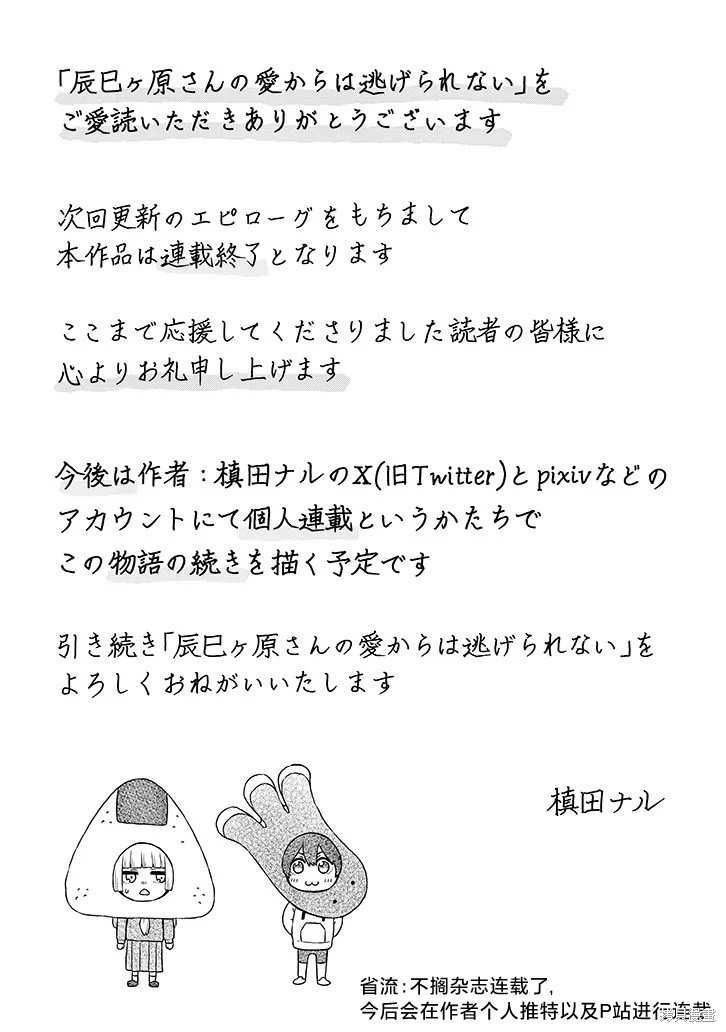 「辰巳ヶ原さんの愛からは逃げられない」を
ご愛読いただきありがとうございます
次回更新のエピローグをもちまして
本作品は連載終了となります
ここまで応援してくださりました読者の皆様に
心よりお礼申し上げます
今後は作者:槙田ナルのX(旧Twitter)とpixivなどの
アカウントにて個人連載というかたちで
この物語の続きを描く予定です
引き続き「辰巳ヶ原さんの愛からは逃げられない」を
よろしくおねがいいたします
槙田ナル
省流:不搁杂志连载了,
今后会在作者个人推特以及P站进行连载